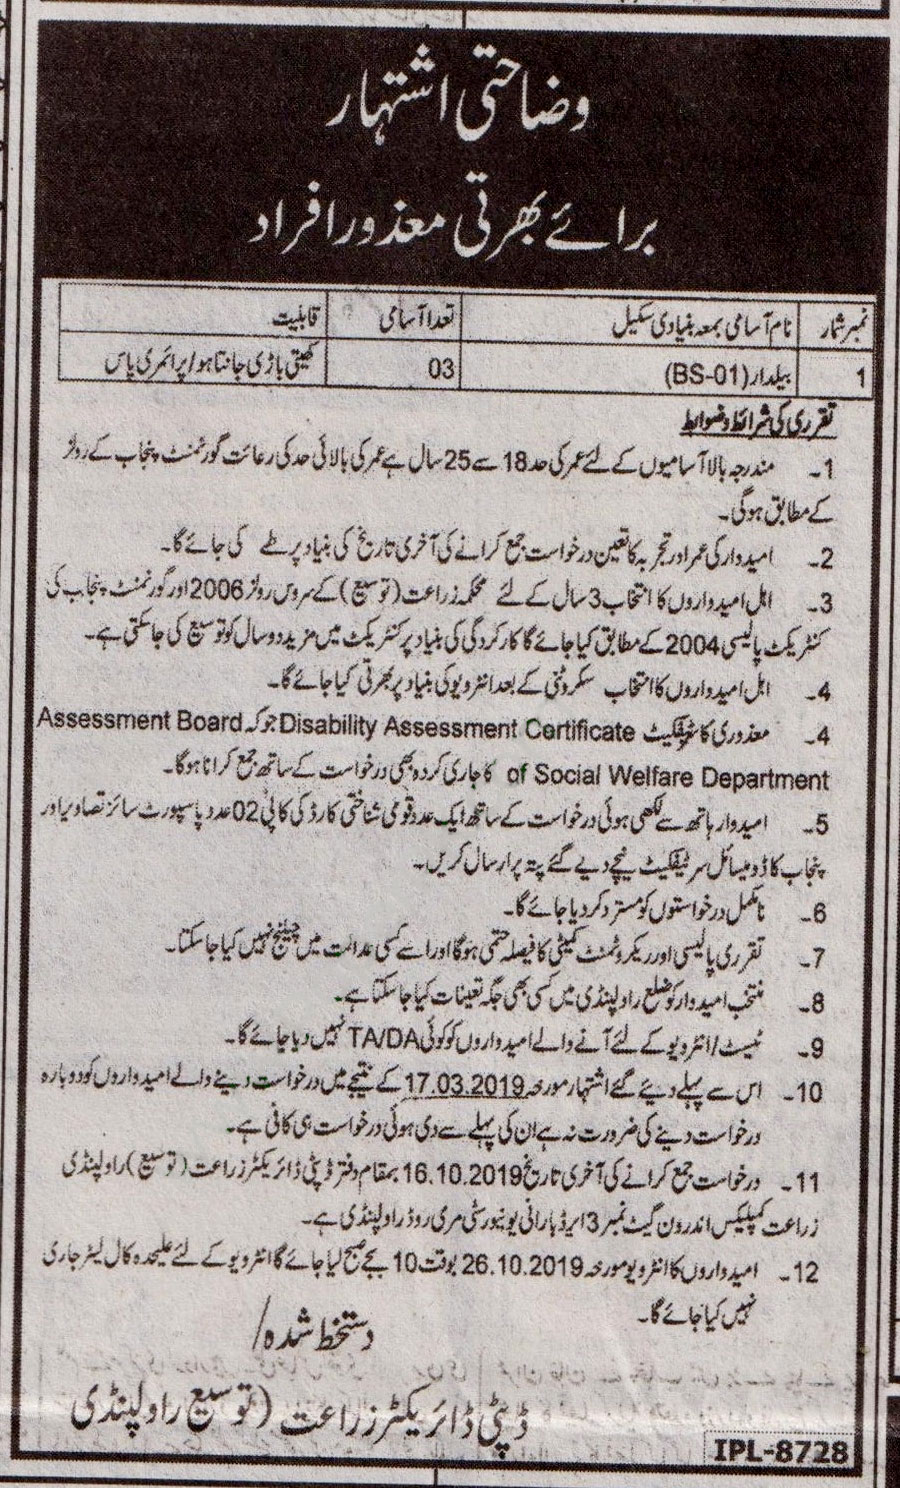 وضاحتی اشتہار
برائے بھرتی معذور افراد
نمبر شمار نام آسامی بمعہ بنیادی سکیل تعداد آسامی قابلیت
1 بیلدار (BS-01) 03 کھیتی باڑی جانتا ہو/پرائمری پاس
تقرری کی شرائط و ضوابط
1۔ مندرجہ بالا آسامیوں کے لئے عمر کی حد 18 سے 25 سال ہے عمر کی بالائی حد کی رعائت گورنمنٹ پنجاب کے رولز
کے مطابق ہو گی۔
2۔ امیدوار کی عمر اور تجربہ کا تعین درخواست جمع کرانے کی آخری تاریخ کی بنیاد پر طے کی جائے گا۔
3۔ اہل امیدواروں کا انتخاب 3 سال کے لئے محکمہ زراعت (توسیع) کے سروس رولز 2006 اور گورنمنٹ پنجاب کی
کنٹریکٹ پالیسی 2004 کے مطابق کیا جائے گا کارکردگی کی بنیاد پر کنٹریکٹ میں مزید دو سال کو توسیع کی جا سکتی ہے۔
4۔ اہل امیدواروں کا انتخاب سکروٹنی کے بعد انٹرویو کی بنیاد پر بھرتی کیا جائے گا۔
4۔ معذوری کا سرٹیفکیٹ Disability Assessment Certificate جو کہ Assessment Board
of Social Welfare Department کا جاری کردہ بھی درخواست کے ساتھ جمع کرانا ہو گا۔
5۔ امیدوار ہاتھ سے لکھی ہوئی درخواست کے ساتھ ایک عدد قومی شناختی کارڈ کی کاپی 02 عدد پاسپورٹ سائز تصاویر اور
پنجاب کا ڈومیسائل سرٹیفکیٹ نیچے دیے گئے پتہ پر ارسال کریں۔
6۔ نامکمل درخواستوں کو مسترد کر دیا جائے گا۔
7۔ تقرری پالیسی اور ریکروٹمنٹ کمیٹی کا فیصلہ حتمی ہو گا اور اسے کسی عدالت میں چیلنج نہیں کیا جا سکتا۔
8۔ منتخب امیدوار کو ضلع راولپنڈی میں کسی بھی جگہ تعینات کیا جا سکتا ہے۔
9۔ ٹیسٹ/انٹرویو کے لئے آنے والے امیدواروں کو کوئی TA/DA نہیں دیا جائے گا۔
10۔ اس سے پہلے دیئے گئے اشتہار مورخہ 17.03.2019 کے نتیجے میں درخواست دینے والے امیدواروں کو دوبارہ
درخواست دینے کی ضرورت نہ ہے ان کی پہلے سے دی ہوئی درخواست ہی کافی ہے۔
11۔ درخواست جمع کرانے کی آخری تاریخ 16.10.2019 بمقام دفتر ڈپٹی ڈائریکٹر زراعت (توسیع) راولپنڈی
زراعت کمپلیکس اندرون گیٹ نمبر 3 ایرڈ بارانی یونیورسٹی مری روڈ راولپنڈی ہے۔
12۔ امیدواروں کا انٹرویو مورخہ 26.10.2019 بوقت 10 بجے صبح کیا جائے گا انٹرویو کے لئے علیحدہ کال لیٹر جاری
نہیں کیا جائے گا۔
دستخط شدہ/
ڈپٹی ڈائریکٹر زراعت (توسیع راولپنڈی
IPL-8728